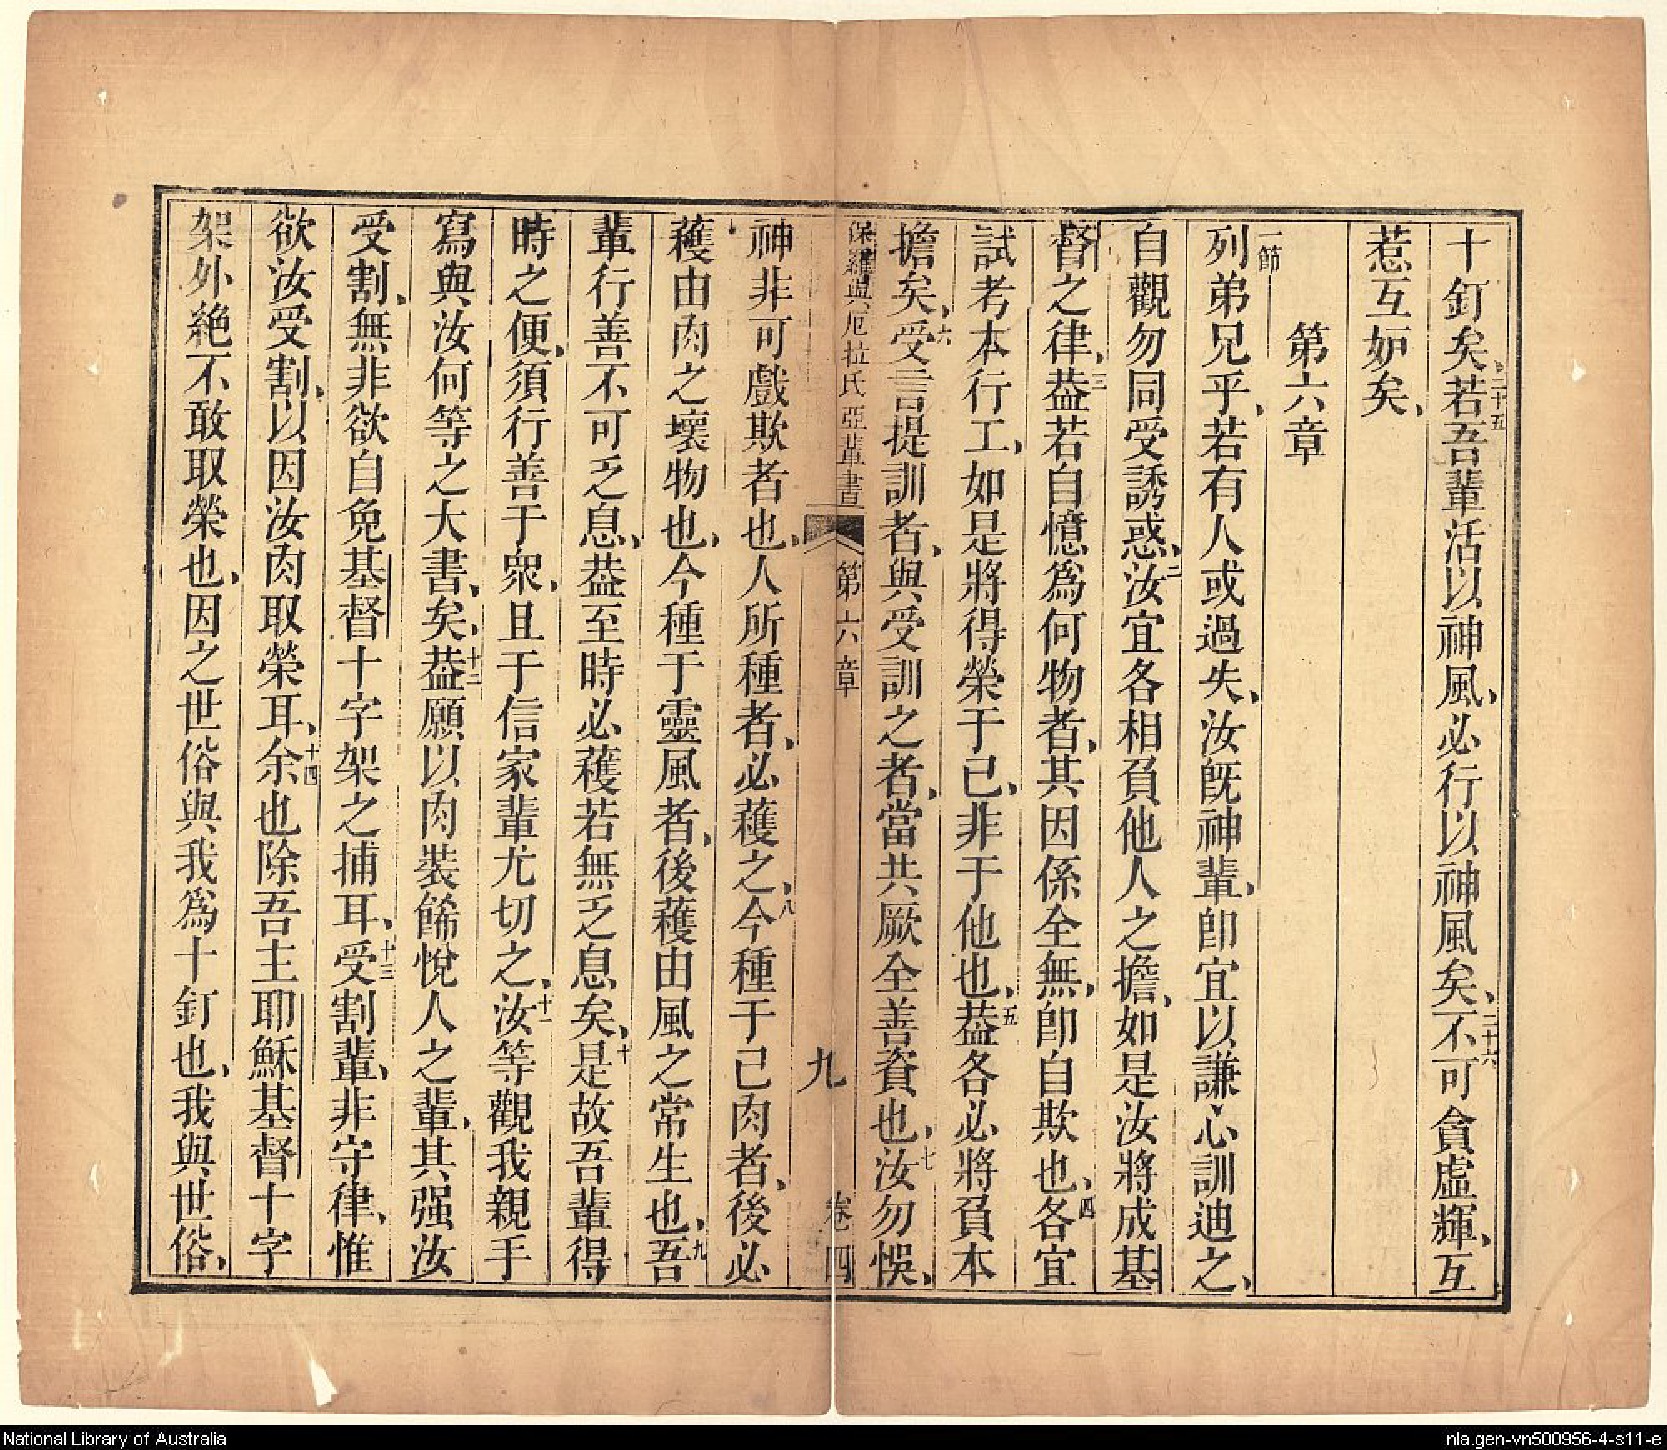 十釘矣二十五若吾輩活以神風、必行以神風矣、二十六不可貪虛輝、互
惹互妒矣、
第六章
一節
列弟兄乎、若有人或過失、汝旣神輩、卽宜以謙心訓迪之、
自觀勿同受誘惑、二汝宜各相負他人之擔、如是汝將成基
督之律、三葢若自憶爲何物者、其因係全無、卽自欺也、四各宜
試考本行工、如是將得榮于己、非于他也、五葢各必將負本
擔矣、六受言提訓者、與受訓之者、當共厥全善資也、七汝勿悞、
保羅與厄拉氏亞輩書 第六章 九 卷四
神非可戲欺者也、人所種者、必蓻之、八今種于己肉者、後必
穫由肉之壞物也、今種于靈風者、後穫由風之常生也、九吾
輩行善不可乏息、葢至時必穫若無乏息矣、十是故吾輩得
時之便、須行善于衆、且于信家輩尤切之、十一汝等觀我親手
寫與汝何等之大書矣、十二葢願以肉裝餙悅人之輩、其强汝
受割、無非欲自免基督十字架之捕耳、十三受割輩、非守律、惟
欲汝受割、以因汝肉取榮耳、十四余也除吾主耶穌基督十字
架外絶不敢取榮也、因之世俗與我爲十釘也、我與世俗、
National Library of Australia
nla.gen-vn500956-4-s11-e